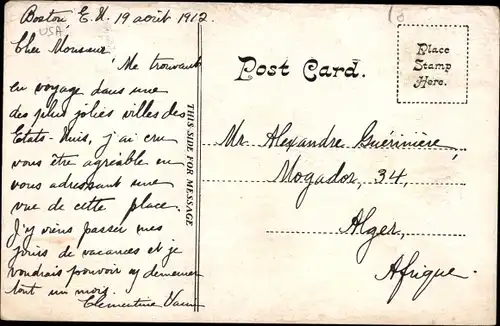 Boston E. U. 19 août 1912.
USA
Cher Monsieur
Me trouvant
en voyage dans une
des plus jolies villes des
Etats-Unis, j'ai cru
vous être agréable en
vous adressant une
vue de cette place.
J'y viens passer mes
jours de vacances et je
voudrais pouvoir y demeurer
tout un mois.
Clementine
THIS SIDE FOR MESSAGE
Post Card.
Place
Stamp
Here.
Mr. Alexandre Guérinière,
Mogador, 34,
Alger,
Afrique.